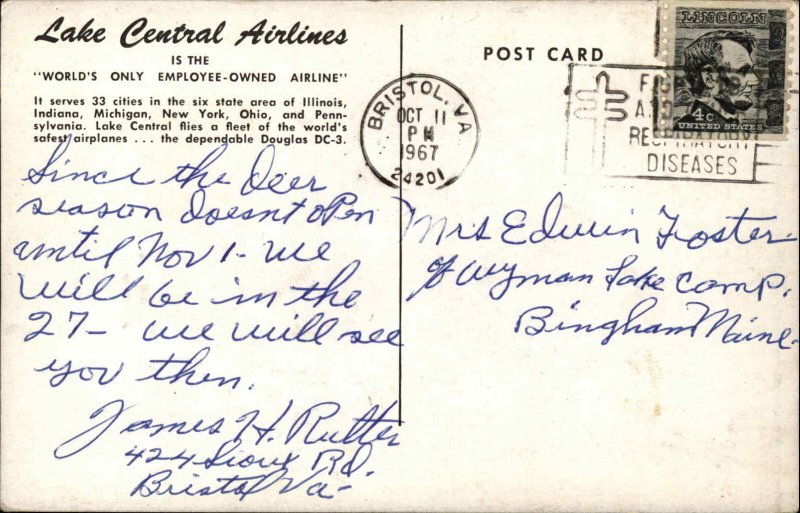 Lake Central Airlines
IS THE
"WORLD'S ONLY EMPLOYEE-OWNED AIRLINE"
It serves 33 cities in the six state area of Illinois,
Indiana, Michigan, New York, Ohio, and Penn-
sylvania. Lake Central flies a fleet of the world's
safest airplanes . . . the dependable Douglas DC-3.
Since the Deer
season doesnt open
until Nov 1- we
will be in the
27- we will see
you then.
James H. Rutter
424 Sioux Rd.
Bristol Va-
POST CARD
BRISTOL, VA
OCT 11
PM
1967
24201
RESPIRATORY
DISEASES
LINCOLN
4c
UNITED STATES
Mrs Edwin Foster
% Wyman Lake Camp.
Bingham Maine-